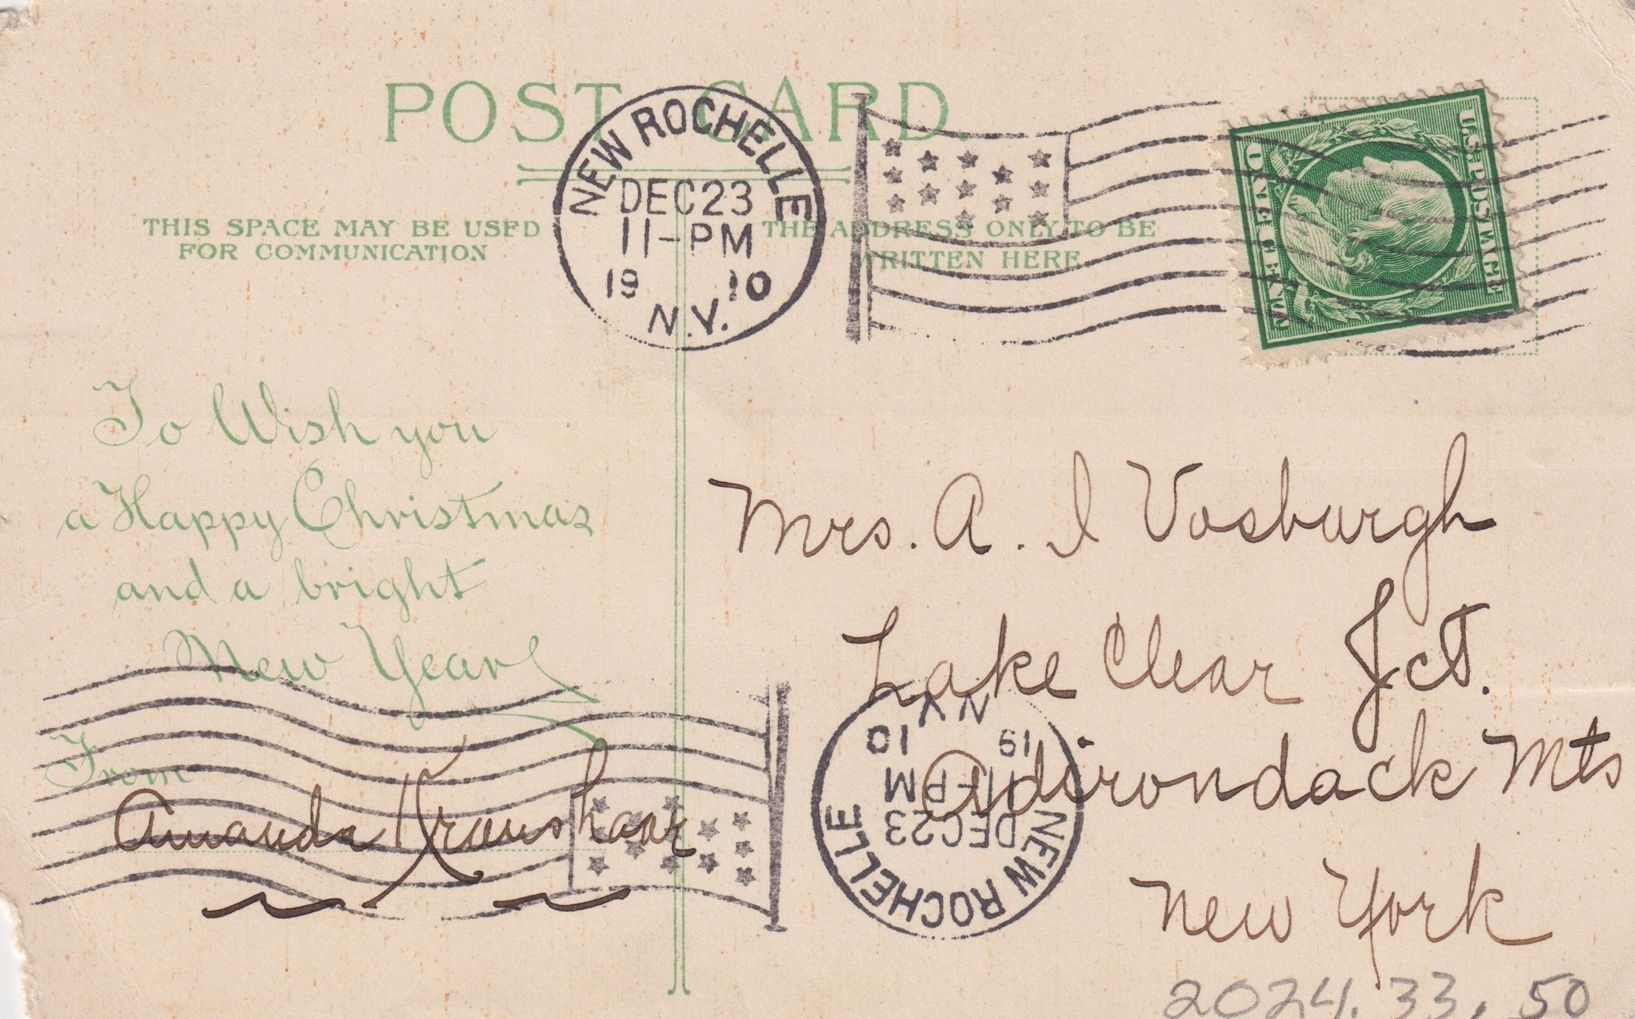 POST CARD.
THIS SPACE MAY BE USED
FOR COMMUNICATION
THE ADDRESS ONLY TO BE
WRITTEN HERE
NEW ROCHELLE
DEC 23
11-PM
19 10
N.Y.
U.S. POSTAGE
ONE CENT
To Wish you
a Happy Christmas
and a bright
New Year
From
Amanda Kraushaar
Mrs. A. I Vosburgh
Lake Clear Jct.
Adirondack Mts
New York
NEW ROCHELLE
DEC 23
11-PM
19 10
N.Y.
2024.33.50